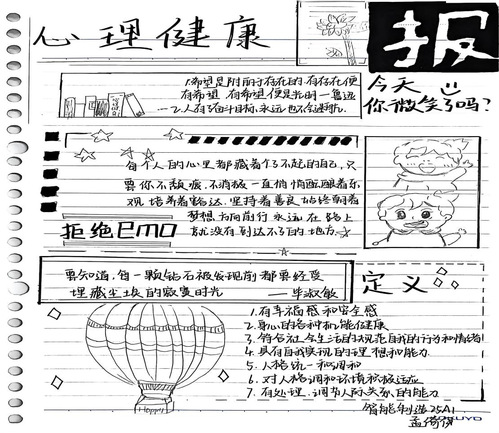 心理健康
报
今天
你微笑了吗?
1.希望是附丽于存在的,有存在,便
有希望,有希望,便是光明—鲁迅
2.人有了奋斗目标,永远也不会迷航.
每个人的心里都藏着个了不起的自己,只
要你不颓废,不消极,一直悄悄酝酿着乐
观,培养着豁达,坚持着善良,始终朝着
梦想,方向前行,永远在路上
就没有到达不了的地方
拒绝Emo
要知道,每一颗钻石被发现前都要经受
埋藏尘埃的寂寞时光
——毕淑敏
定义
1.有幸福感和安全感
2.身心的各种机能健康
3.符合社会生活的规范,自我的行为和情绪
4.具有自我实现的理想和能力
5.人格统一和调和
6.对人格调和环境积极适应
7.有处理、调节人际关系的能力
Happy
智能制造25A1